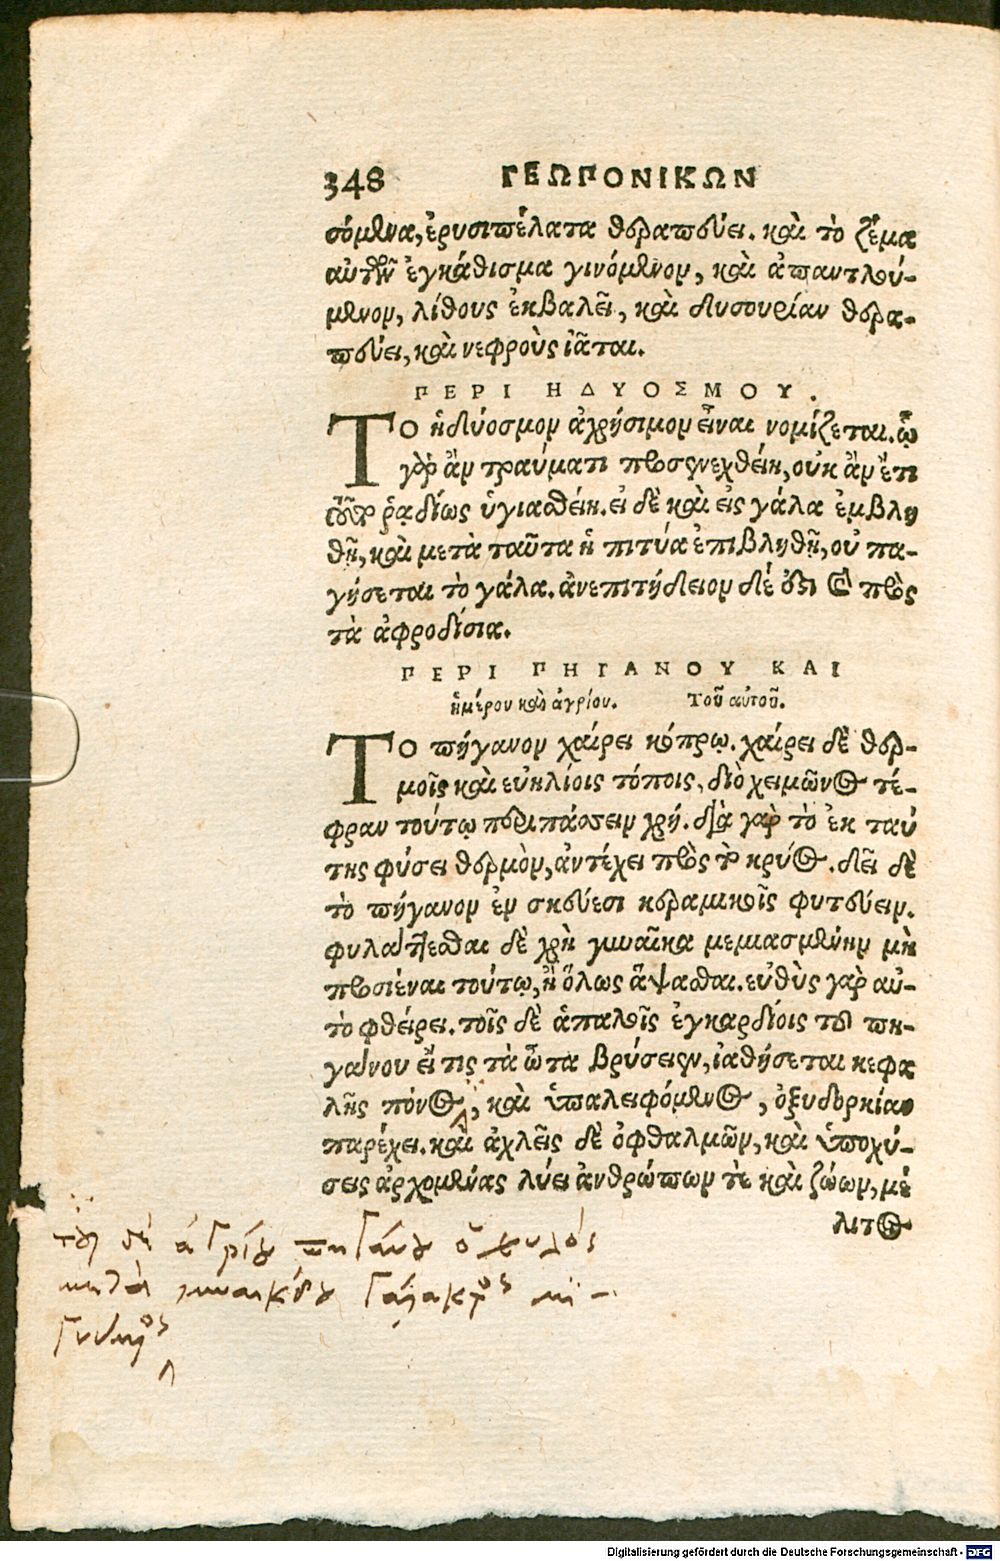 348 ΓΕΩΠΟΝΙΚΩΝ
σόμενα, ἐρυσιπέλατα θεραπεύει. καὶ τὸ ζέμα
αὐτῶν ἐγκάθισμα γινόμενον, καὶ ἀπαντλού-
μενον, λίθους ἐκβαλεῖ, καὶ δυσουρίαν θερα-
πεύει, καὶ νεφροὺς ἰᾶται.
ΠΕΡΙ ΗΔΥΟΣΜΟΥ.
ΤΟ ἡδύοσμον ἀχρήσιμον εἶναι νομίζεται. ᾧ
γὰρ ἂν τραύματι προσενεχθείη, οὐκ ἂν ἔτι
ῥᾳδίως ὑγιασθείη. εἰ δὲ καὶ εἰς γάλα ἐμβλη
θῇ, καὶ μετὰ ταῦτα ἡ πιτύα ἐπιβληθῇ, οὐ πα-
γήσεται τὸ γάλα. ἀνεπιτήδειον δέ ὅτι καὶ πρὸς
τὰ ἀφροδίσια.
ΠΕΡΙ ΠΗΓΑΝΟΥ ΚΑΙ
ἡμέρου καὶ ἀγρίου. Τοῦ αὐτοῦ.
ΤΟ πήγανον χαίρει κόπρῳ. χαίρει δὲ θερ-
μοῖς καὶ εὐηλίοις τόποις, διὸ χειμῶνος τέ-
φραν τούτῳ περιπάσσειν χρή. διὰ γὰρ τὸ ἐκ ταύ
της φύσει θερμὸν, ἀντέχει πρὸς τὸ κρύος. δεῖ δὲ
τὸ πήγανον ἐν σκεύεσι κεραμικοῖς φυτεύειν.
φυλάττεσθαι δὲ χρὴ γυναῖκα μεμιασμένην μὴ
προσιέναι τούτῳ, ἢ ὅλως ἅψασθαι. εὐθὺς γὰρ αὐ-
τὸ φθείρει. τοῖς δὲ ἁπαλοῖς ἐγκαρδίοις τοῦ πη-
γάνου εἴ τις τὰ ὦτα βρύσειεν, ἰαθήσεται κεφα
λῆς πόνος, καὶ ὑπαλειφόμενος, ὀξυδορκίαν
παρέχει. καὶ ἀχλεῖς δὲ ὀφθαλμῶν, καὶ ὑποχύ-
σεις ἀρχομένας λύει ἀνθρώπων τὲ καὶ ζώων, μέ
λιτος
τοῦ δὲ ἀγρίου πηγάνου ὁ χυλὸς
μετὰ γυναικείου γάλακτος μι-
γνύμενος